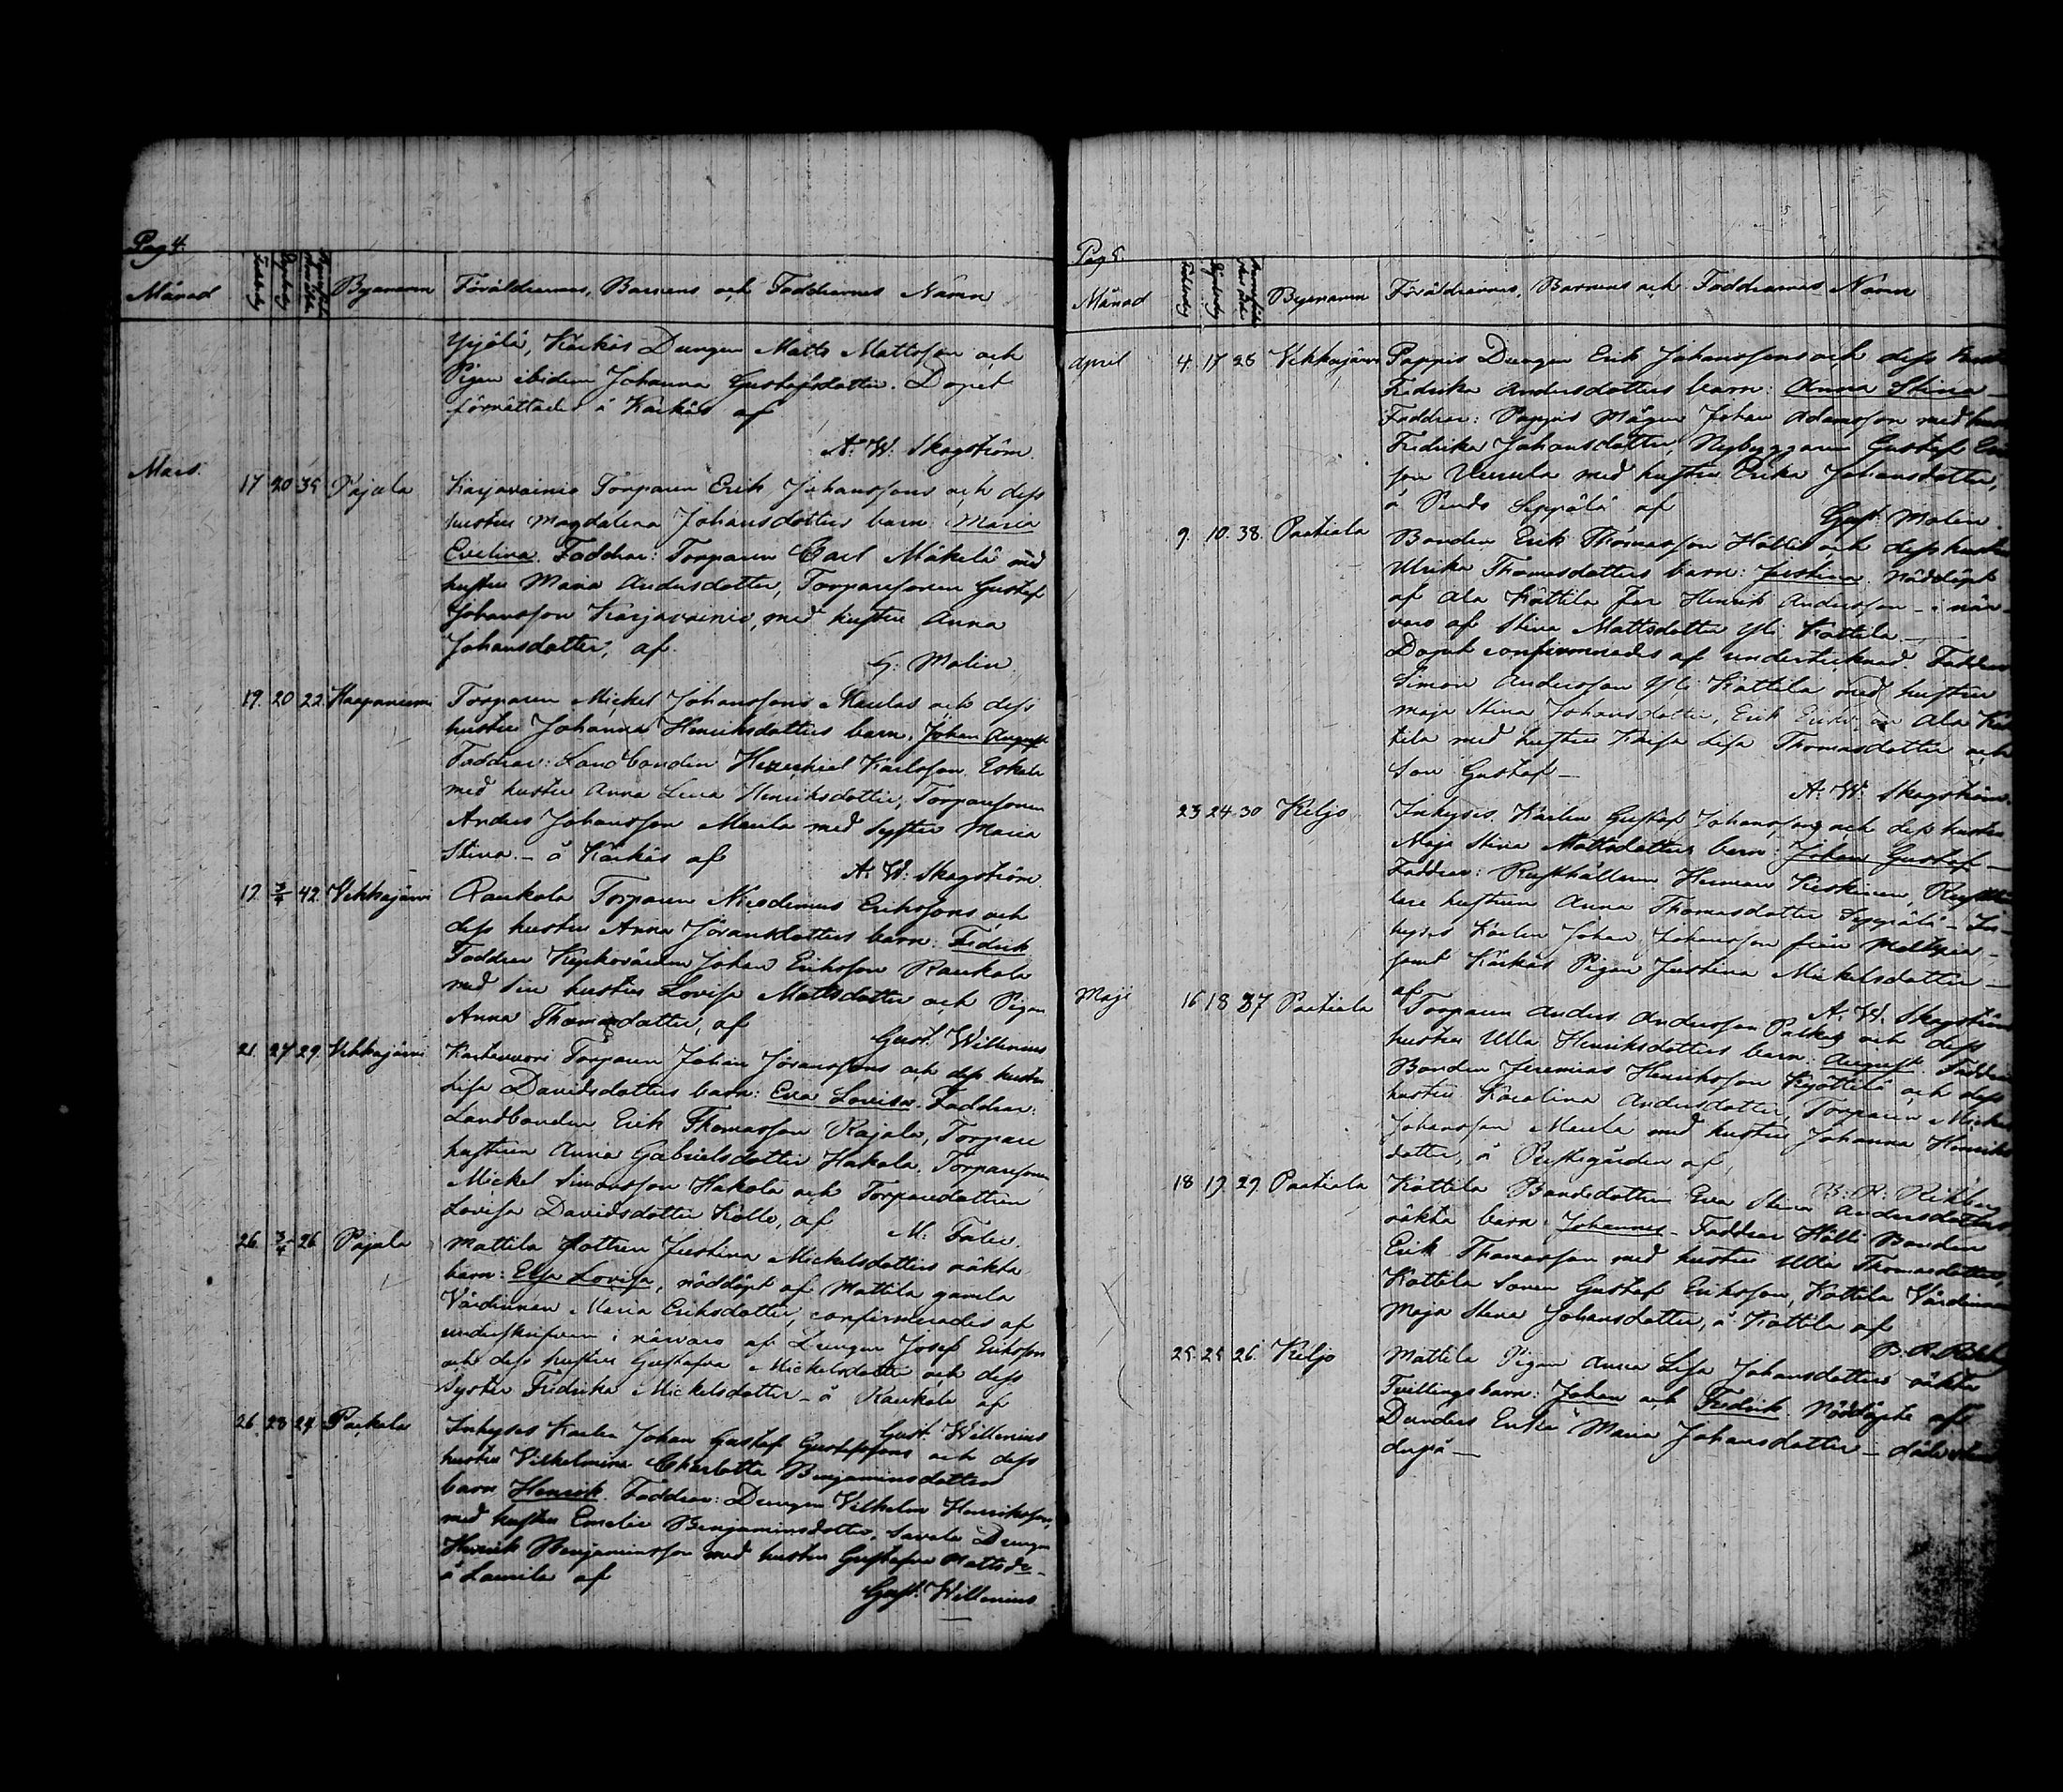 Pag 4.
Månad Byanamn Föräldrarnes, Barnens och Faddrarnes Namn
Ypjälä, Kärkäs Drengen Matts Mattsson och
Pigan ibidem Johanna Gustafsdotter. Dopet
förrättades å Kärkäs af
A. W. Skogström.
Mars.
17 20 35 Pajala Karjavainio Torparen Erik Johanssons och dess
hustru Magdalena Johansdotters barn: Maria
Evelina. Faddrar: Torparen Carl Mäkelä med
hustru Maria Andersdotter, Torparesonen Gustaf
Johansson Karjavainio, med hustru Anna
Johansdotter, af
G. Molin
19. 20 22. Haapaniemi Torparen Mickel Johanssons Maulas och dess
hustru Johanna Henriksdotters barn. Johan August
Faddrar: Landbonden Hezechiel Karlsson Eskola
med hustru Anna Lena Henriksdotter, Torparesonen
Anders Johansson Maula med syster Maria
Stina. – å Kärkäs af
A. W. Skogström.
17. 3/4 42. Vekkajärvi Raukola Torparen Nicodemus Erikssons och
dess hustru Anna Göransdotters barn: Fredrik
Faddrar Kyrkovärden Johan Eriksson Raukola
med sin hustru Lovisa Mattsdotter och Pigan
Anna Thomasdotter, af
Gust. Willenius
21. 27 29. Vekkajärvi Torparen Johan Göranssons och dess hustru
Lisa Davidsdotters barn: Eva Lovisa. Faddrar:
Landbonden Erik Thomasson Rajala, Torpare
hustrun Anna Gabrielsdotter Hakola, Torparesonen
Mickel Simonsson Hakola och Torparedottren
Lovisa Davidsdotter Kollo, af
26. 3/4 26 Pajala Mattila dottren Justina Mickelsdotters oäkta
barn: Eva Lovisa, nöddöpt af Mattila gamla
Värdinnan Maria Eriksdotter, confirmerades af
underskrifven i närvaro af Drengen Josef Eriksson
och dess hustru Gustafva Mickelsdotter och dess
syster Fredrika Mickelsdotter – å Raukola af
Gust. Willenius
26. 23 24 Parkala Inhyses Karlen Johan Gustaf Gustafssons och dess
hustru Vilhelmina Charlotta Benjaminsdotters
barn Henrik. Faddrar: Drengen Vilhelm Henriksson,
med hustru Emelie Benjaminsdotter, Savala Drengen
Henrik Benjaminsson med hustru Gustafva Mattsdr.
å Laurila af
Gust. Willenius
Pag 5.
Månad Byanamn Föräldrarnes, Barnens och Faddrarnes Namn
April 4. 17 25 Vekkajärvi Pappis Drengen Erik Johanssons och dess hustru
Fredrika Andersdotters barn: Anna Stina –
Faddrar: Pappis Mågen Johan Adamsson med hustru
Fredrika Johansdotter, Nybyggaren Gustaf
med hustru Erika Johansdotter,
å Seppälä af
Gust. Molin.
9. 10. 38. Partiala Bonden Erik Thomasson Hölli och dess hustru
Ulrika Thomasdotters barn: Justina. Nöddöpt
af Ala Kottila far Henrik Andersson – i när-
varo af Stina Mattsdotter Yli Kottila –
Dopet confirmerades af undertecknad. Faddrar
Simon Andersson Yli Kottila med hustru
Maja Stina Johansdotter, Erik Eriksson Ala Kot
tila med hustru Lisa Thomasdotter och
Son Gustaf –
A. W. Skogström.
23 24 30 Keljo Inhyses Karlen Gustaf Johanssons och dess hustru
Maja Stina Mattsdotters barn: Johan Gustaf –
Faddrar: Rusthållaren Herman Keskinen, Rusthål
lare hustrun Anna Thomasdotter Seppälä – In-
hyses Karlen Johan Johansson från
samt Kärkäs Pigan Justina Mickelsdotter –
af
A. W. Skogström
Maji 16 18 37 Partiala Torparen Anders Andersson och dess
hustru Ulla Henriksdotters barn: August. Faddrar
Bonden Jeremias Henriksson Kyöttilä och dess
hustru Karolina Andersdotter, Torparen Mickel
Johansson Maula med hustru Johanna Henriks
dotter, å Prestgården af
18 19. 29. Partiala Kottila Bondedottren Eva Stina Andersdotters
oäkta barn: Johannes – Faddrar Hölli Bonden
Erik Thomasson med hustru Ulla Thomasdotter,
Kottila Sonen Gustaf Eriksson, Kottila Värdinnan
Maja Stina Johansdotter, å Kottila af
25. 25 26. Keljo Mattila Pigan Anna Lisa Johansdotters oäkta
Tvillingsbarn: Johan och Fredrik. Nöddöpte af
Enka Maria Johansdotter –
derpå –